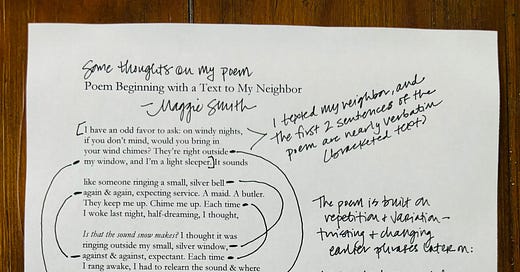 Some thoughts on my poem
Poem Beginning with a Text to My Neighbor
—Maggie Smith
[I have an odd favor to ask: on windy nights,
if you don't mind, would you bring in
your wind chimes? They're right outside
my window, and I'm a light sleeper.] It sounds
like someone ringing a small, silver bell
again & again, expecting service. A maid. A butler.
They keep me up. Chime me up. Each time
I woke last night, half-dreaming, I thought,
Is that the sound snow makes? I thought it was
ringing outside my small, silver window,
against & against, expectant. Each time
I rang awake, I had to relearn the sound & where
I texted my neighbor, and
the first 2 sentences of the
poem are nearly verbatim
(bracketed text)
The poem is built on
repetition & variation—
twisting & changing
earlier phrases later on: